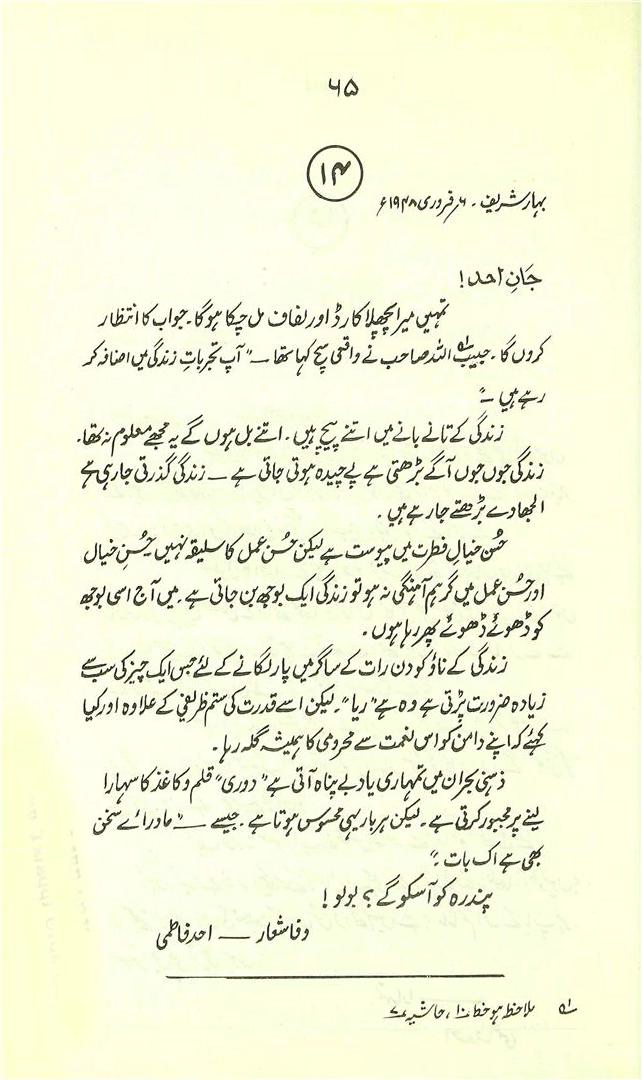 ۶۵
۱۴
بہار شریف ۔ ۶ر فروری ۱۹۴۸ء
جانِ احمد !
تمہیں میرا پچھلا کارڈ اور لفاف مل چکا ہوگا۔ جواب کا انتظار
کروں گا۔ حبیب اللہ صاحب نے واقعی سچ کہا تھا — "آپ تجرباتِ زندگی میں اضافہ کر
رہے ہیں —"
زندگی کے تانے بانے میں اتنے پیچ ہیں۔ اتنے بل ہوں گے یہ مجھے معلوم نہ تھا۔
زندگی جوں جوں آگے بڑھتی ہے پیچیدہ ہوتی جاتی ہے — زندگی گذرتی جا رہی ہے
الجھاوے بڑھتے جا رہے ہیں ۔
حُسن خیال فطرت میں پیوست ہے لیکن حُسن عمل کا سلیقہ نہیں حُسنِ خیال
اور حُسن عمل میں گر ہم آہنگی نہ ہو تو زندگی ایک بوجھ بن جاتی ہے ۔ میں آج اسی بوجھ
کو ڈھوئے ڈھوئے پھر رہا ہوں ۔
زندگی کے ناؤ کو دن رات کے ساگر میں پار لگانے کے لئے جس ایک چیز کی سب سے
زیادہ ضرورت پڑتی ہے وہ ہے "ریا"۔ لیکن اسے قدرت کی ستم ظریفی کے علاوہ اور کیا
کہئے کہ اپنے دامن کو اس نعمت سے محرومی کا ہمیشہ گلہ رہا ۔
ذہنی بحران میں تمہاری یاد بے پناہ آتی ہے "دوری" قلم و کاغذ کا سہارا
لینے پر مجبور کرتی ہے ۔ لیکن ہر بار یہی محسوس ہوتا ہے ۔ جیسے — "ماورائے سخن
بھی ہے اک بات ۔"
پندرہ کو آسکو گے ؟ بولو !
وفا شعار — احمد فاطمی
۱؎ ملاحظہ ہو خط ۱۰ ، حاشیہ ۷